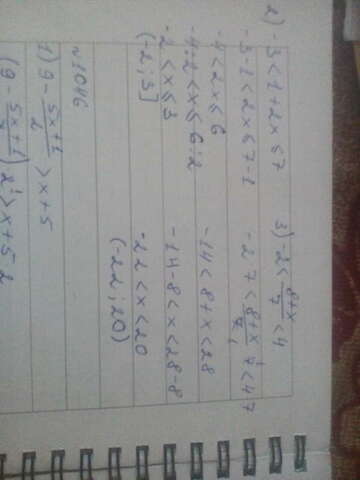 2) -3<1+2x≤7
-3-1<2x≤7-1
-4<2x≤6
-4:2<x≤6:2
-2<x≤3
(-2;3]
3) -2<8+x/7<4
-2·7<8+x/7·7<4·7
-14<8+x<28
-14-8<x<28-8
-22<x<20
(-22;20)
№1046
1) 9-5x+1/2>x+5
(9-5x+1/2)2>x+5·2